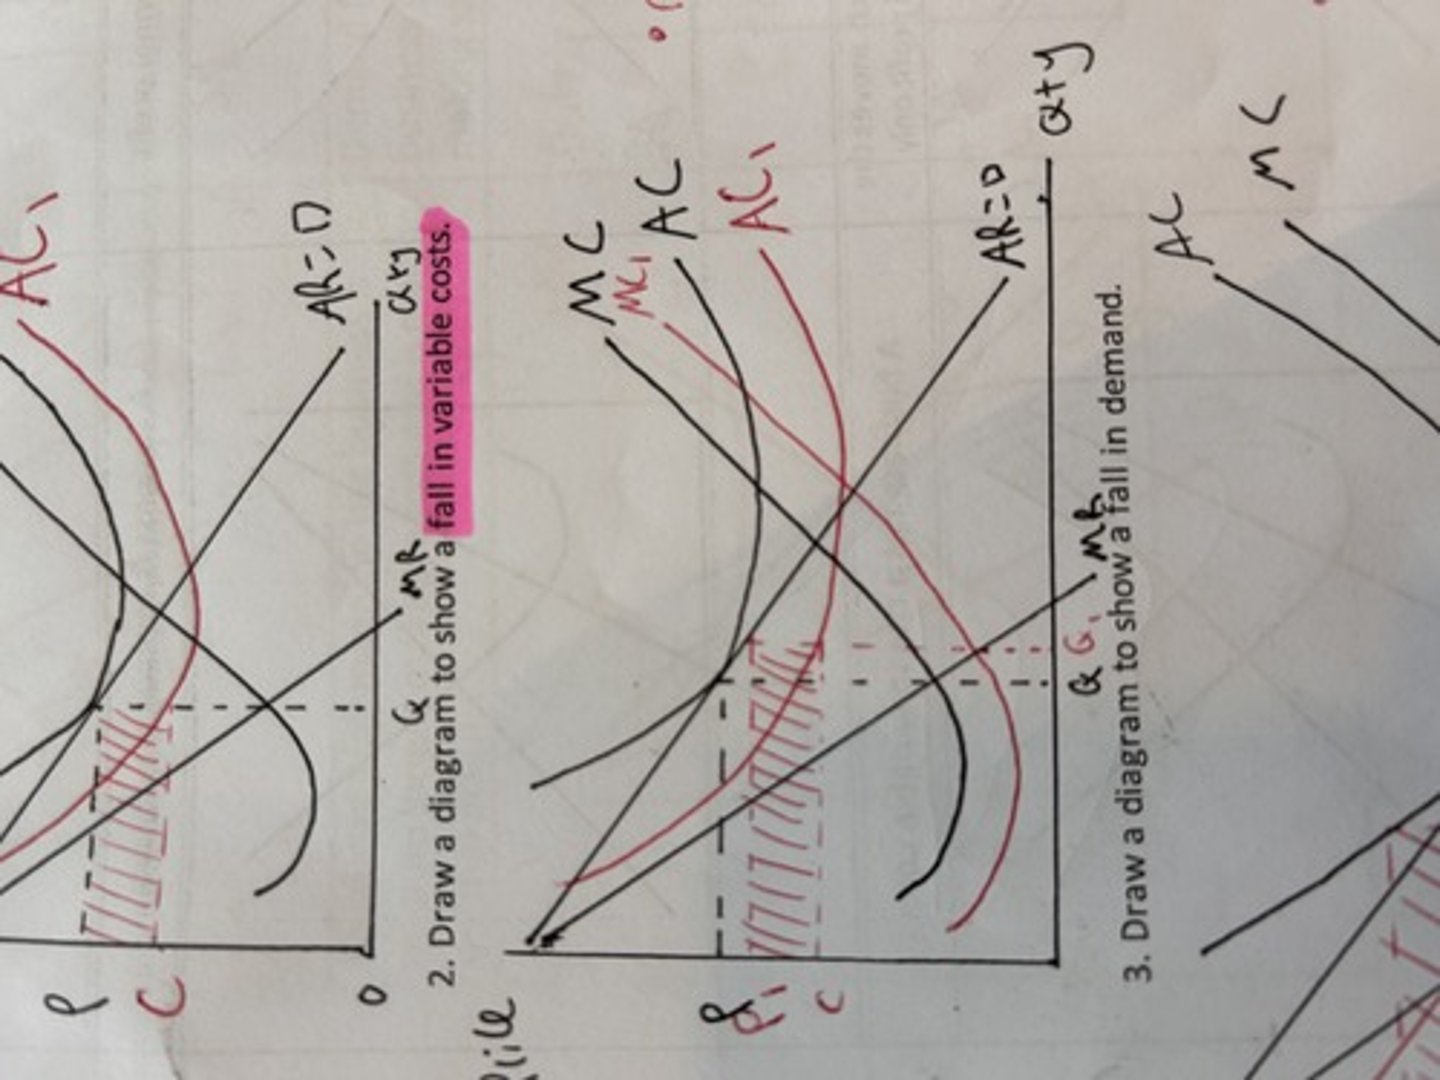 AC1
AR=D
P
C
0
Q
MR
Qty
2. Draw a diagram to show a fall in variable costs.
MC
MC1
AC
AC1
AR=D
P
P1
C
Q Q1
MR
Qty
3. Draw a diagram to show a fall in demand.
AC
MC